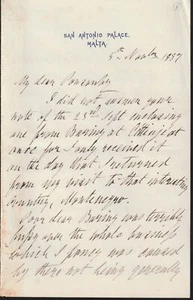 SAN ANTONIO PALACE,
MALTA.
5th Novbr 1887
My dear Ponsonby
I did not answer your
note of the 23rd Sept inclosing
one from Baring at Cettinje at
once for I only received it
on the day that I returned
from my visit to that interesting
Country, Montenegro.
Poor dear Baring was terribly
over the whole business
which I fancy was caused
by there not being generally